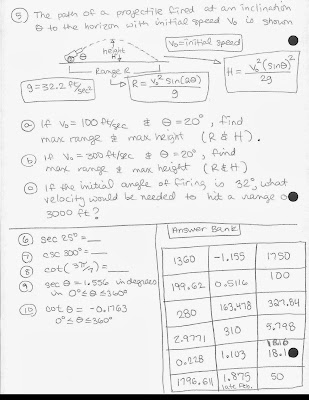 ⑤ The path of a projectile fired at an inclination
θ to the horizon with initial speed V₀ is shown
V₀ = initial speed
height
H
θ
Range R
g = 32.2 ft/sec²
R = V₀² sin(2θ) / g
H = V₀² (sin θ)² / 2g
ⓐ If V₀ = 100 ft/sec & θ = 20°, find
max range & max height (R & H).
ⓑ If V₀ = 300 ft/sec & θ = 20°, find
max range & max height (R & H)
ⓒ If the initial angle of firing is 32°, what
velocity would be needed to hit a range of
3000 ft?
⑥ sec 25° = __
⑦ csc 300° = __
⑧ cot(3π/7) = __
⑨ sec θ = 1.556 in degrees
in 0° ≤ θ ≤ 360°
⑩ cot θ = -0.1763
0° ≤ θ ≤ 360°
Answer Bank
1360 -1.155 1750
199.62 0.5116 100
280 163.478 327.84
2.9771 310 5.798
0.228 1.103 18.1
1796.611 1.875 50